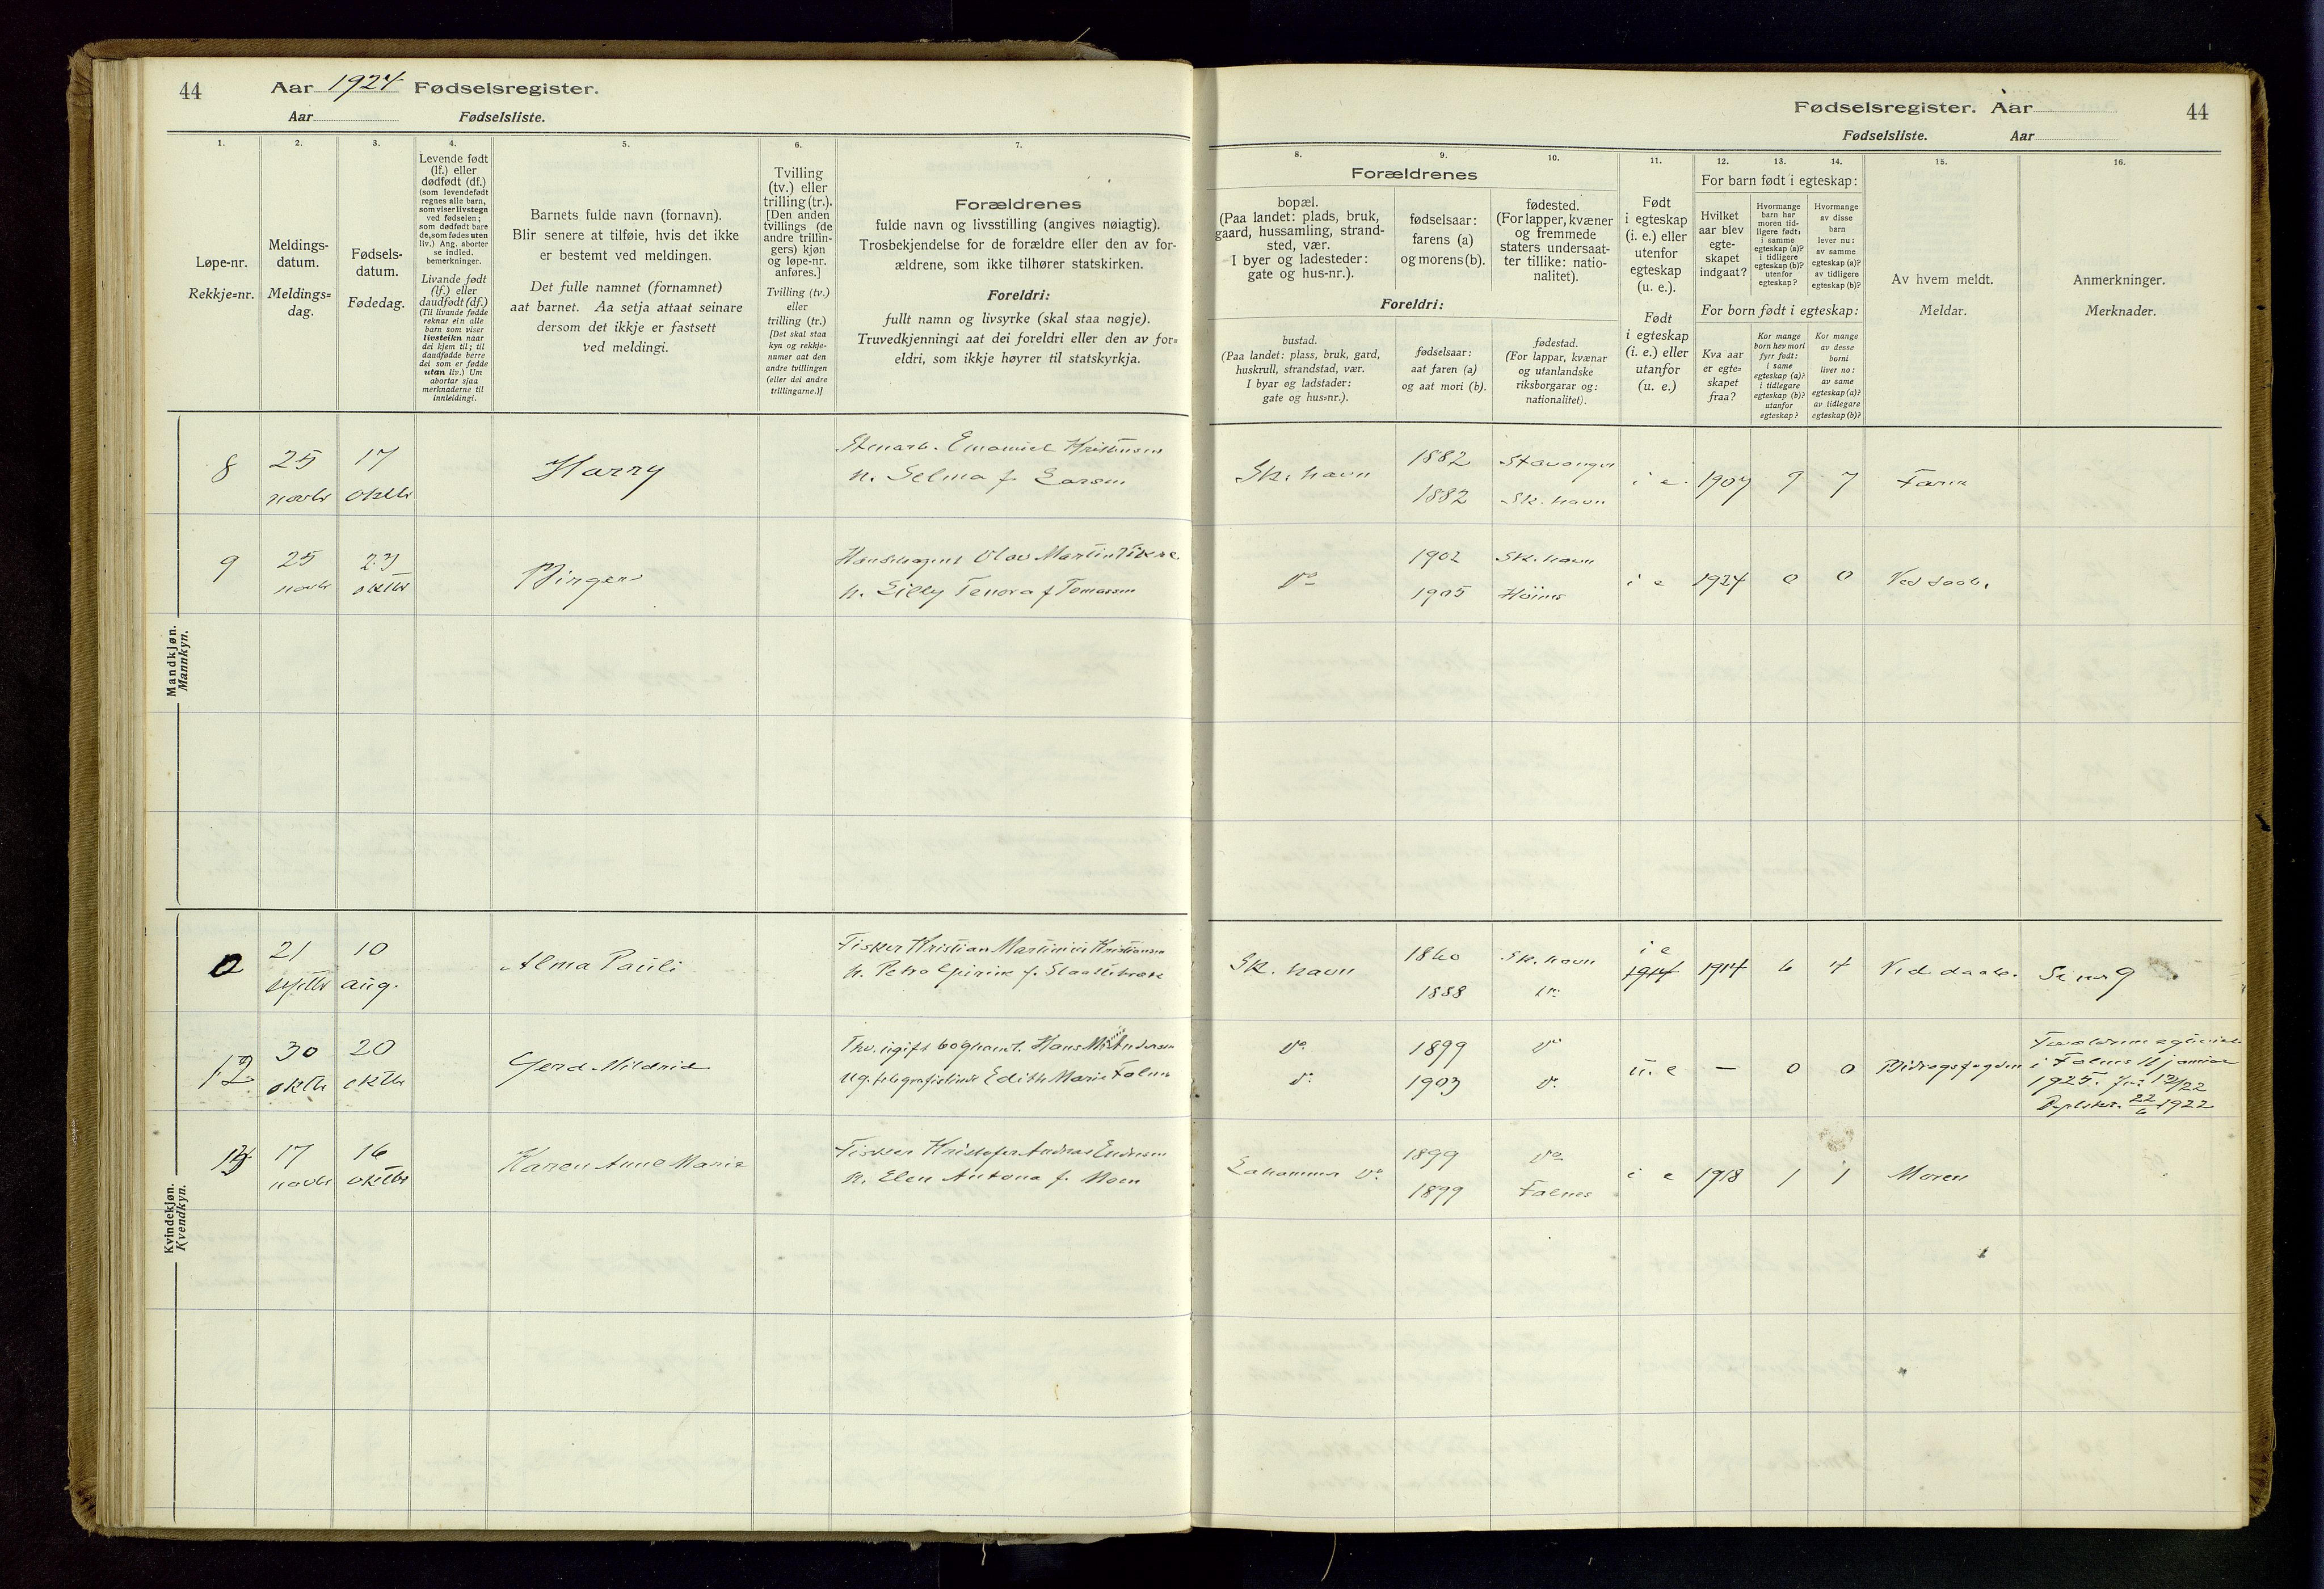 44 Aar 1924 Fødselsregister.
Aar Fødselsliste.
Fødselsregister. Aar 44
Fødselsliste. Aar
1. 2. 3. 4. 5. 6. 7.
Løpe-nr.
Rekkje=nr.
Meldings-
datum.
Meldings=
dag.
Fødsels-
datum.
Fødedag.
Levende født
(lf.) eller
dødfødt (df.)
(som levendefødt
regnes alle barn,
som viser livstegn
ved fødselen;
som dødfødt bare
de, som fødes uten
liv.) Ang. aborter
se indled.
bemerkninger.
Livande født
(lf.) eller
daudfødt (df.)
(Til livande fødde
reknar ein alle
born som viser
livsteikn naar
dei kjem til; til
daudfødde berre
dei som er fødde
utan liv.) Um
abortar sjaa
merknaderne til
innleidingi.
Barnets fulde navn (fornavn).
Blir senere at tilføie, hvis det ikke
er bestemt ved meldingen.
Det fulle namnet (fornamnet)
aat barnet. Aa setja attaat seinare
dersom det ikkje er fastsett
ved meldingi.
Tvilling
(tv.) eller
trilling (tr.).
[Den anden
tvillings (de
andre trillin-
gers) kjøn
og løpe-nr.
anføres.]
Tvilling (tv.)
eller
trilling (tr.)
[Det skal staa
kyn og rekkje-
numer aat den
andre tvillingen
(eller dei andre
trillingarne.)]
Forældrenes
fulde navn og livsstilling (angives nøiagtig).
Trosbekjendelse for de forældre eller den av for-
ældrene, som ikke tilhører statskirken.
Foreldri:
fullt namn og livsyrke (skal staa nøgje).
Truvedkjenningi aat dei foreldri eller den av for=
eldri, som ikkje høyrer til statskyrkja.
8. 9. 10. 11. 12. 13. 14. 15. 16.
Forældrenes
bopæl.
(Paa landet: plads, bruk,
gaard, hussamling, strand-
sted, vær.
I byer og ladesteder:
gate og hus-nr.).
fødselsaar:
farens (a)
og morens (b).
fødested.
(For lapper, kvæner
og fremmede
staters undersaat-
ter tillike: natio-
nalitet).
Foreldri:
bustad.
(Paa landet: plass, bruk, gard,
huskrull, strandstad, vær.
I byar og ladstader:
gate og hus=nr.).
fødselsaar:
aat faren (a)
og aat mori (b).
fødestad.
(For lappar, kvænar
og utanlandske
riksborgarar og:
nationalitet).
Født
i egteskap
(i. e.) eller
utenfor
egteskap
(u. e.).
Født
i egteskap
(i. e.) eller
utanfor
(u. e.)
For barn født i egteskap:
Hvilket
aar blev
egte-
skapet
indgaat?
Hvormange
barn har
moren tid-
ligere født:
i samme
egteskap (a)?
i tidligere
egteskap (b)?
utenfor
egteskap?
Hvormange
av disse
barn
lever nu:
av samme
egteskap (a)?
av tidligere
egteskap (b)?
For born født i egteskap:
Kva aar
er egte=
skapet
fraa?
Kor mange
born hev mori
fyrr født:
i same
egteskap (a)?
i tidlegare
egteskap (b)?
utanfor
egteskap?
Kor mange
av desse
borni
liver no:
av same
egteskap (a)?
av tidlegare
egteskap (b)?
Av hvem meldt.
Meldar.
Anmerkninger.
Merknader.
Mandkjøn.
Mannkyn.
8 25 novbr 17 oktbr Harry
Emanuel Kristensen
h. Selma f. Larsen
Sk. havn 1882 Stavanger i e. 1907 9 7 Faren
1882 Sk. havn
9 25 novbr 23 oktbr Birger
Handelsagent Olav Martin
h. Lilly Tenora f Tomassen
Do 1902 Sk. havn i e 1924 0 0 Ved daab.
1905
Kvindekjøn.
Kvendkyn.
21 septbr 10 aug. Alma Pauli
Fisker Kristian Martinius Kristiansen
h. Petra
Sk. havn 1860 Sk. havn i e 1914 1914 6 4 Ved daab. Se nr 9
1888 Do
12 30 oktbr 20 oktbr Gerd Mildrid
Fhv. ugift Hans M. Andersen
ug. telegrafistinde Edith Marie Falnes
Do 1899 Do u. e — 0 0 Bidragsfogden
Do 1903 Do
i Falnes 11 januar
1925.
22/6 1922
13 17 novbr 16 oktbr Karen Anne Marie
Fisker Kristofer Andreas Endresen
h. Elen Antona f. Moen
Lahammer Do 1899 Do i e 1918 1 1 Moren
1899 Falnes